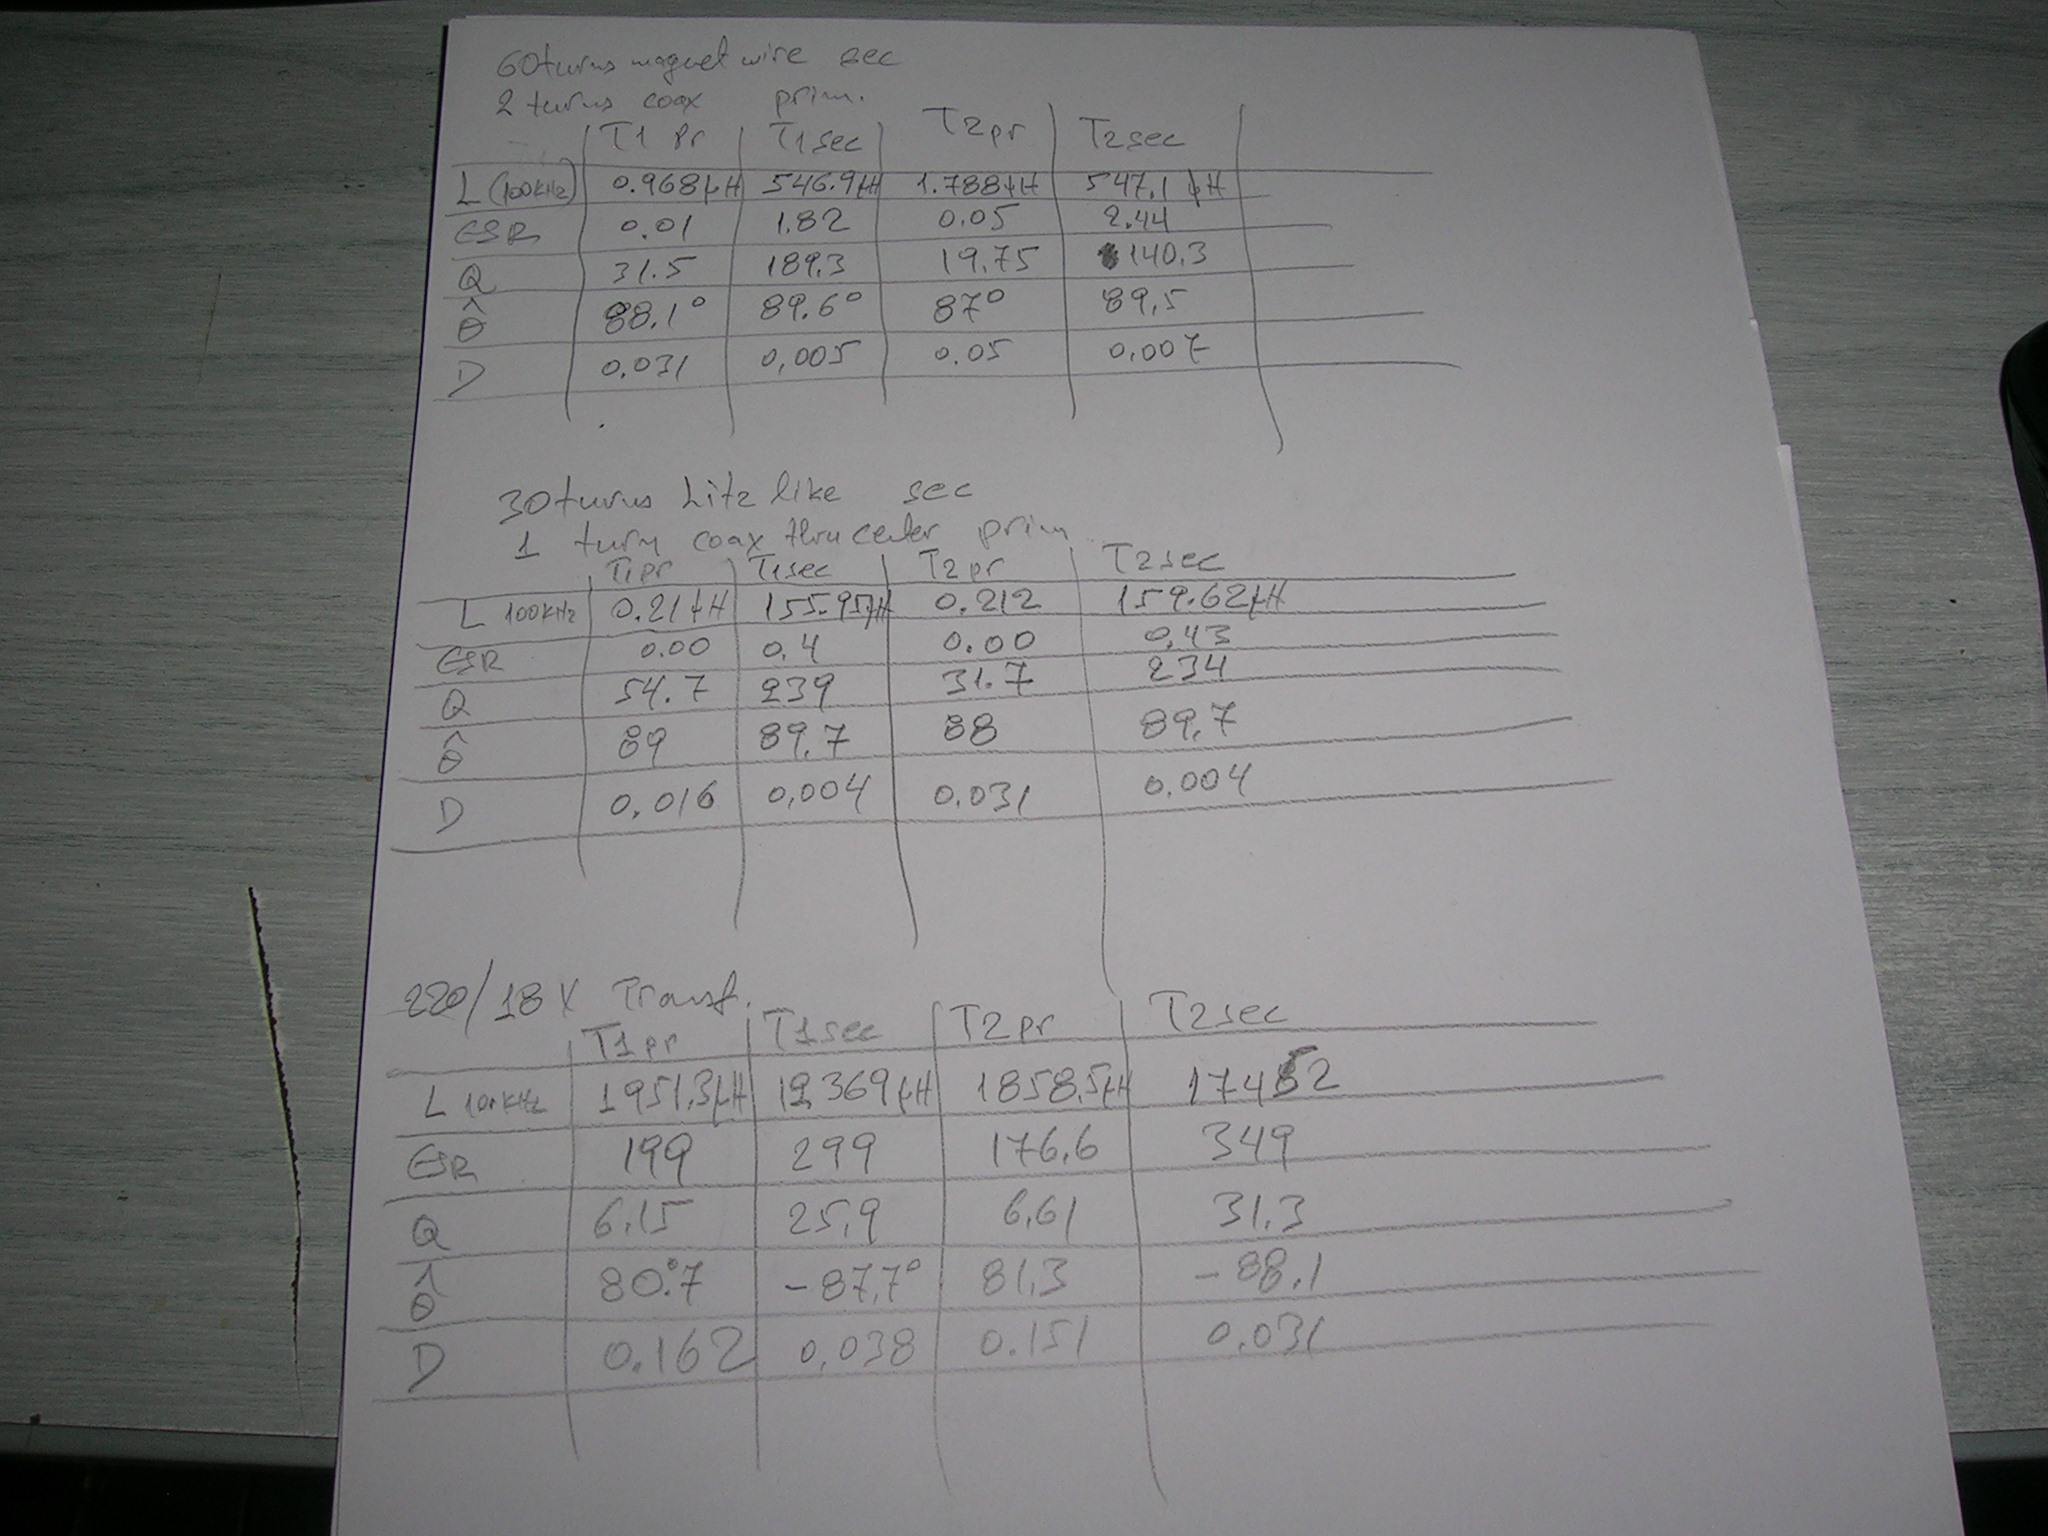 60turns magnet wire sec
2 turns coax prim.
T1 Pr T1sec T2pr T2sec
L (100KHz) 0.968µH 546.9µH 1.788µH 547.1 µH
ESR 0.01 1.82 0.05 2.44
Q 31.5 189.3 19.75 140.3
θ̂ 88.1° 89.6° 87° 89,5
D 0.031 0,005 0.05 0,007
30turns Litz like sec
1 turn coax thru center prim
T1pr T1sec T2pr T2sec
L 100KHz 0.21µH 155.95µH 0.212 159.62µH
ESR 0.00 0.4 0.00 0,43
Q 54.7 239 31.7 234
θ̂ 89 89.7 88 89,7
D 0.016 0,004 0.031 0.004
220/18 V Transf.
T1pr T1sec T2pr T2sec
L 100KHz 1951,3µH 369µH 1858,5µH 17452
ESR 199 299 176,6 349
Q 6,15 25,9 6,61 31,3
θ̂ 80°.7 -87,7° 81,3 -88,1
D 0.162 0,038 0.151 0,031